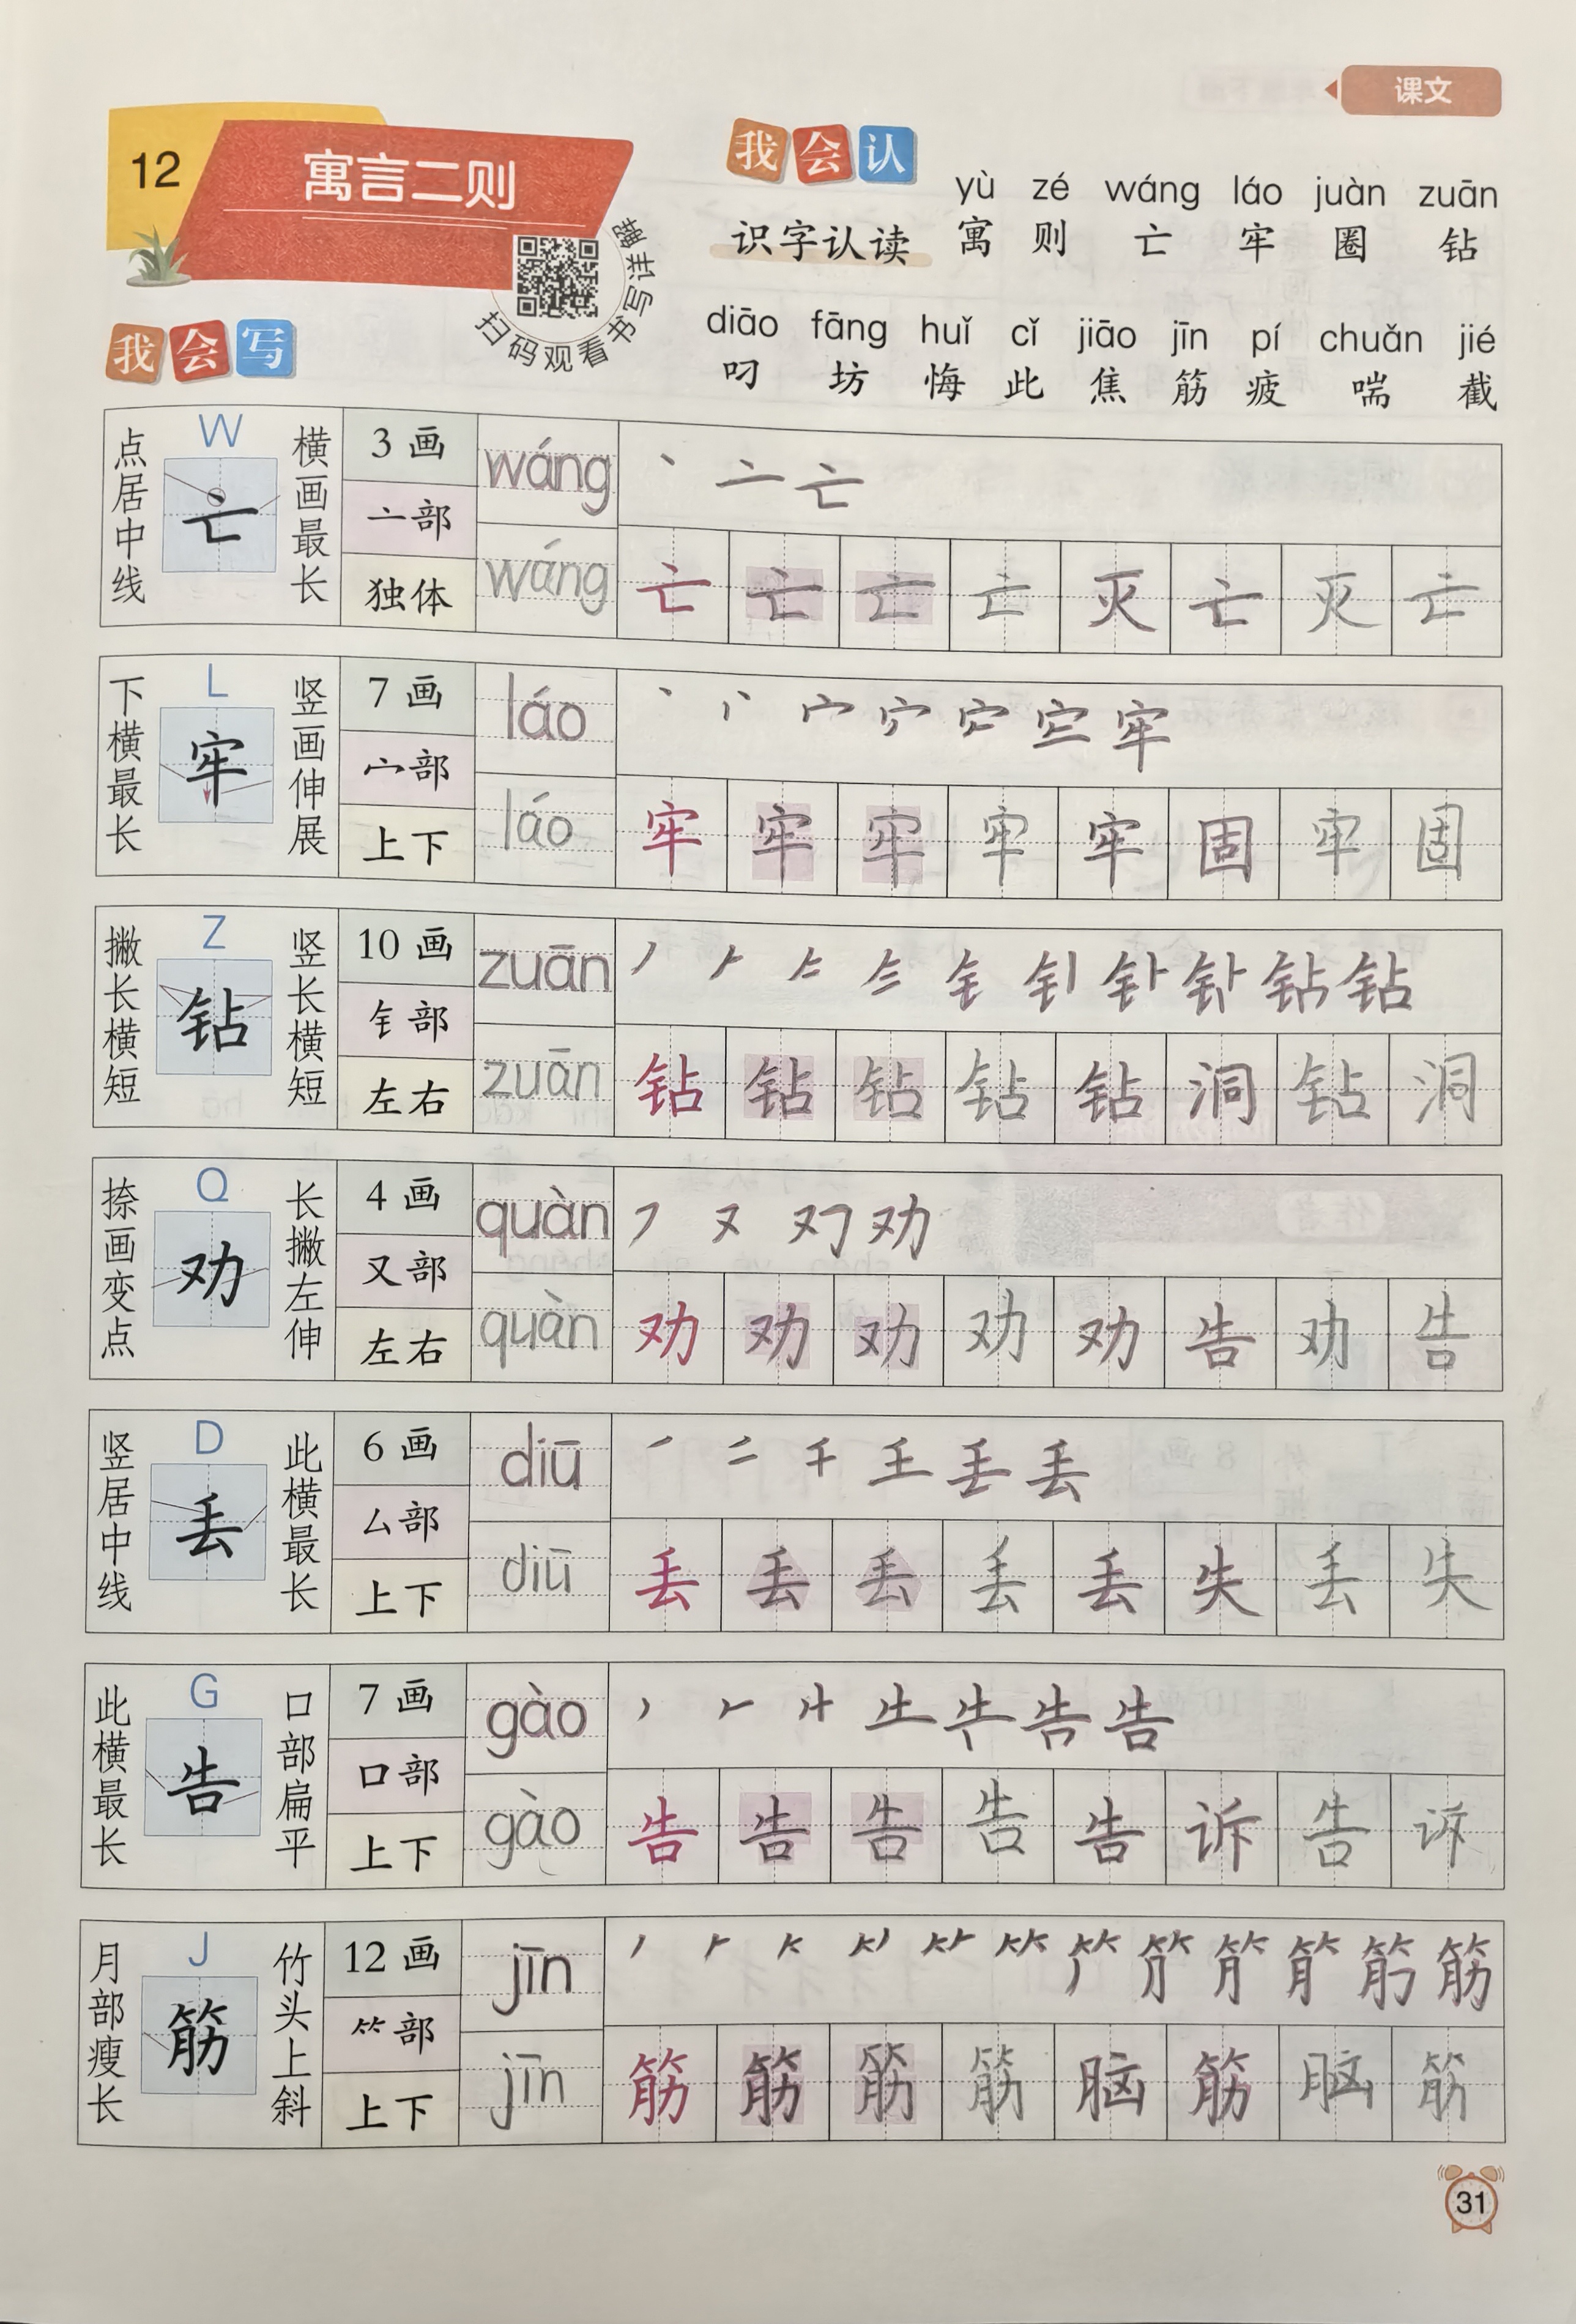 课文
12 寓言二则
扫码观看书写详解
我会认
yù zé wáng láo juàn zuān
识字认读 寓 则 亡 牢 圈 钻
diāo fāng huǐ cǐ jiāo jīn pí chuǎn jié
叼 坊 悔 此 焦 筋 疲 喘 截
我会写
点居中线
W
亡
横画最长
3 画
亠部
独体
wáng
wáng
丶 亠 亡
亡 亡 亡 亡 灭 亡 灭 亡
下横最长
L
牢
竖画伸展
7 画
宀部
上下
láo
láo
牢
牢 牢 牢 牢 牢 固 牢 固
撇长横短
Z
钻
竖长横短
10 画
钅部
左右
zuān
zuān
钻
钻 钻 钻 钻 钻 洞 钻 洞
捺画变点
Q
劝
长撇左伸
4 画
又部
左右
quàn
quàn
㇇ 又 劝
劝 劝 劝 劝 劝 告 劝 告
竖居中线
D
丢
此横最长
6 画
厶部
上下
diū
diū
丢
丢 丢 丢 丢 丢 失 丢 失
此横最长
G
告
口部扁平
7 画
口部
上下
gào
gào
告
告 告 告 告 告 诉 告 诉
月部瘦长
J
筋
竹头上斜
12 画
⺮部
上下
jīn
jīn
筋
筋 筋 筋 筋 脑 筋 脑 筋
31